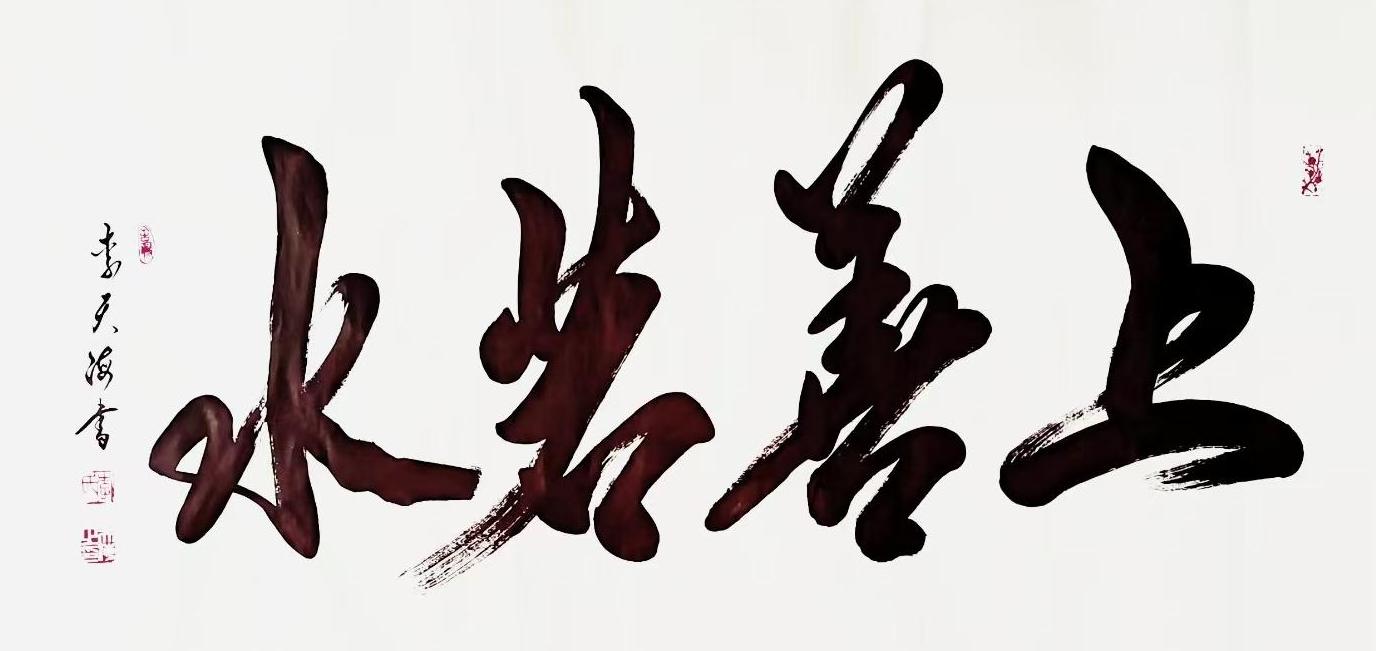 上善若水
李天海书